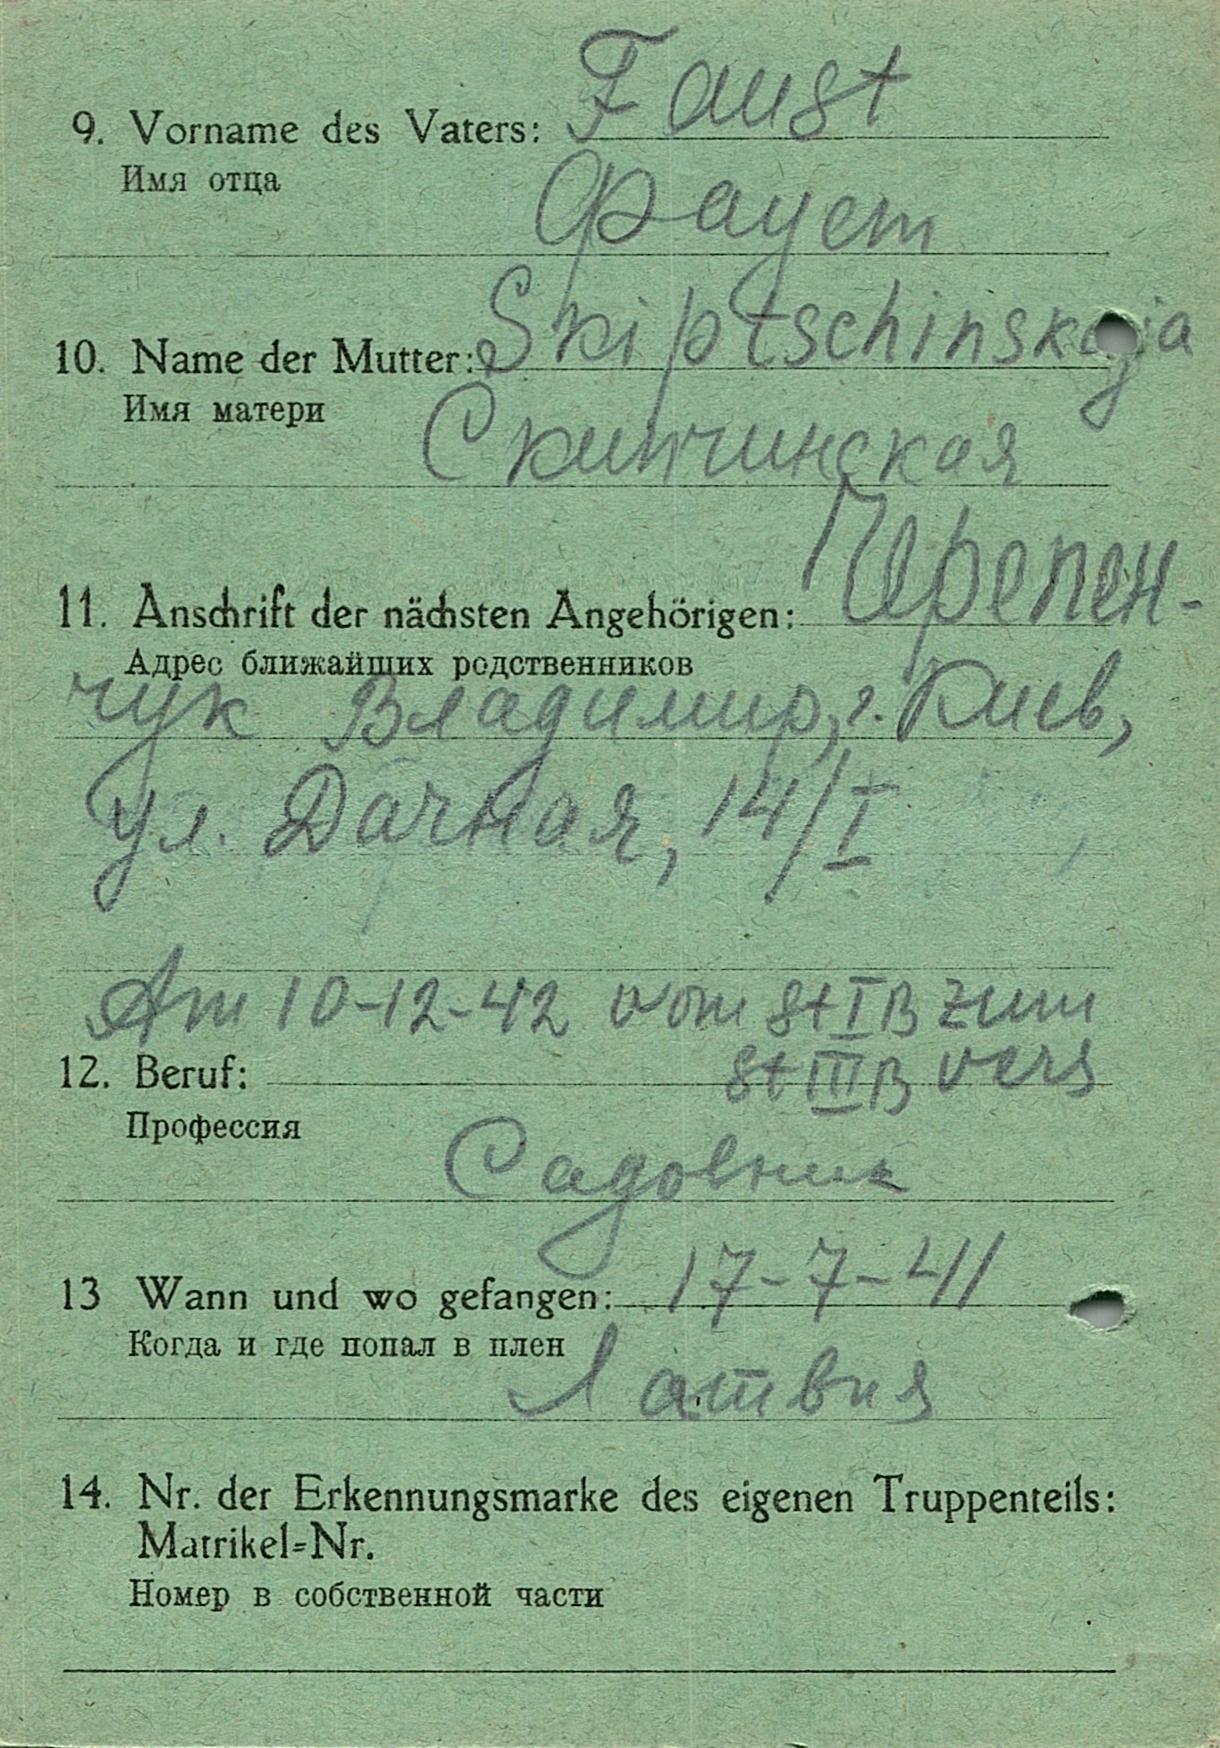 9. Vorname des Vaters: Faust
Имя отца
Фауст
10. Name der Mutter: Skiptschinskaja
Имя матери
Скипчинская
11. Anschrift der nächsten Angehörigen: Черепен-
Адрес ближайших родственников
чук Владимир, г. Киев,
ул. Дачная, 14/I
Am 10-12-42 vom St I B zum
12. Beruf: St III B vers
Профессия
Садовник
13 Wann und wo gefangen: 17-7-41
Когда и где попал в плен
Латвия
14. Nr. der Erkennungsmarke des eigenen Truppenteils:
Matrikel=Nr.
Номер в собственной части